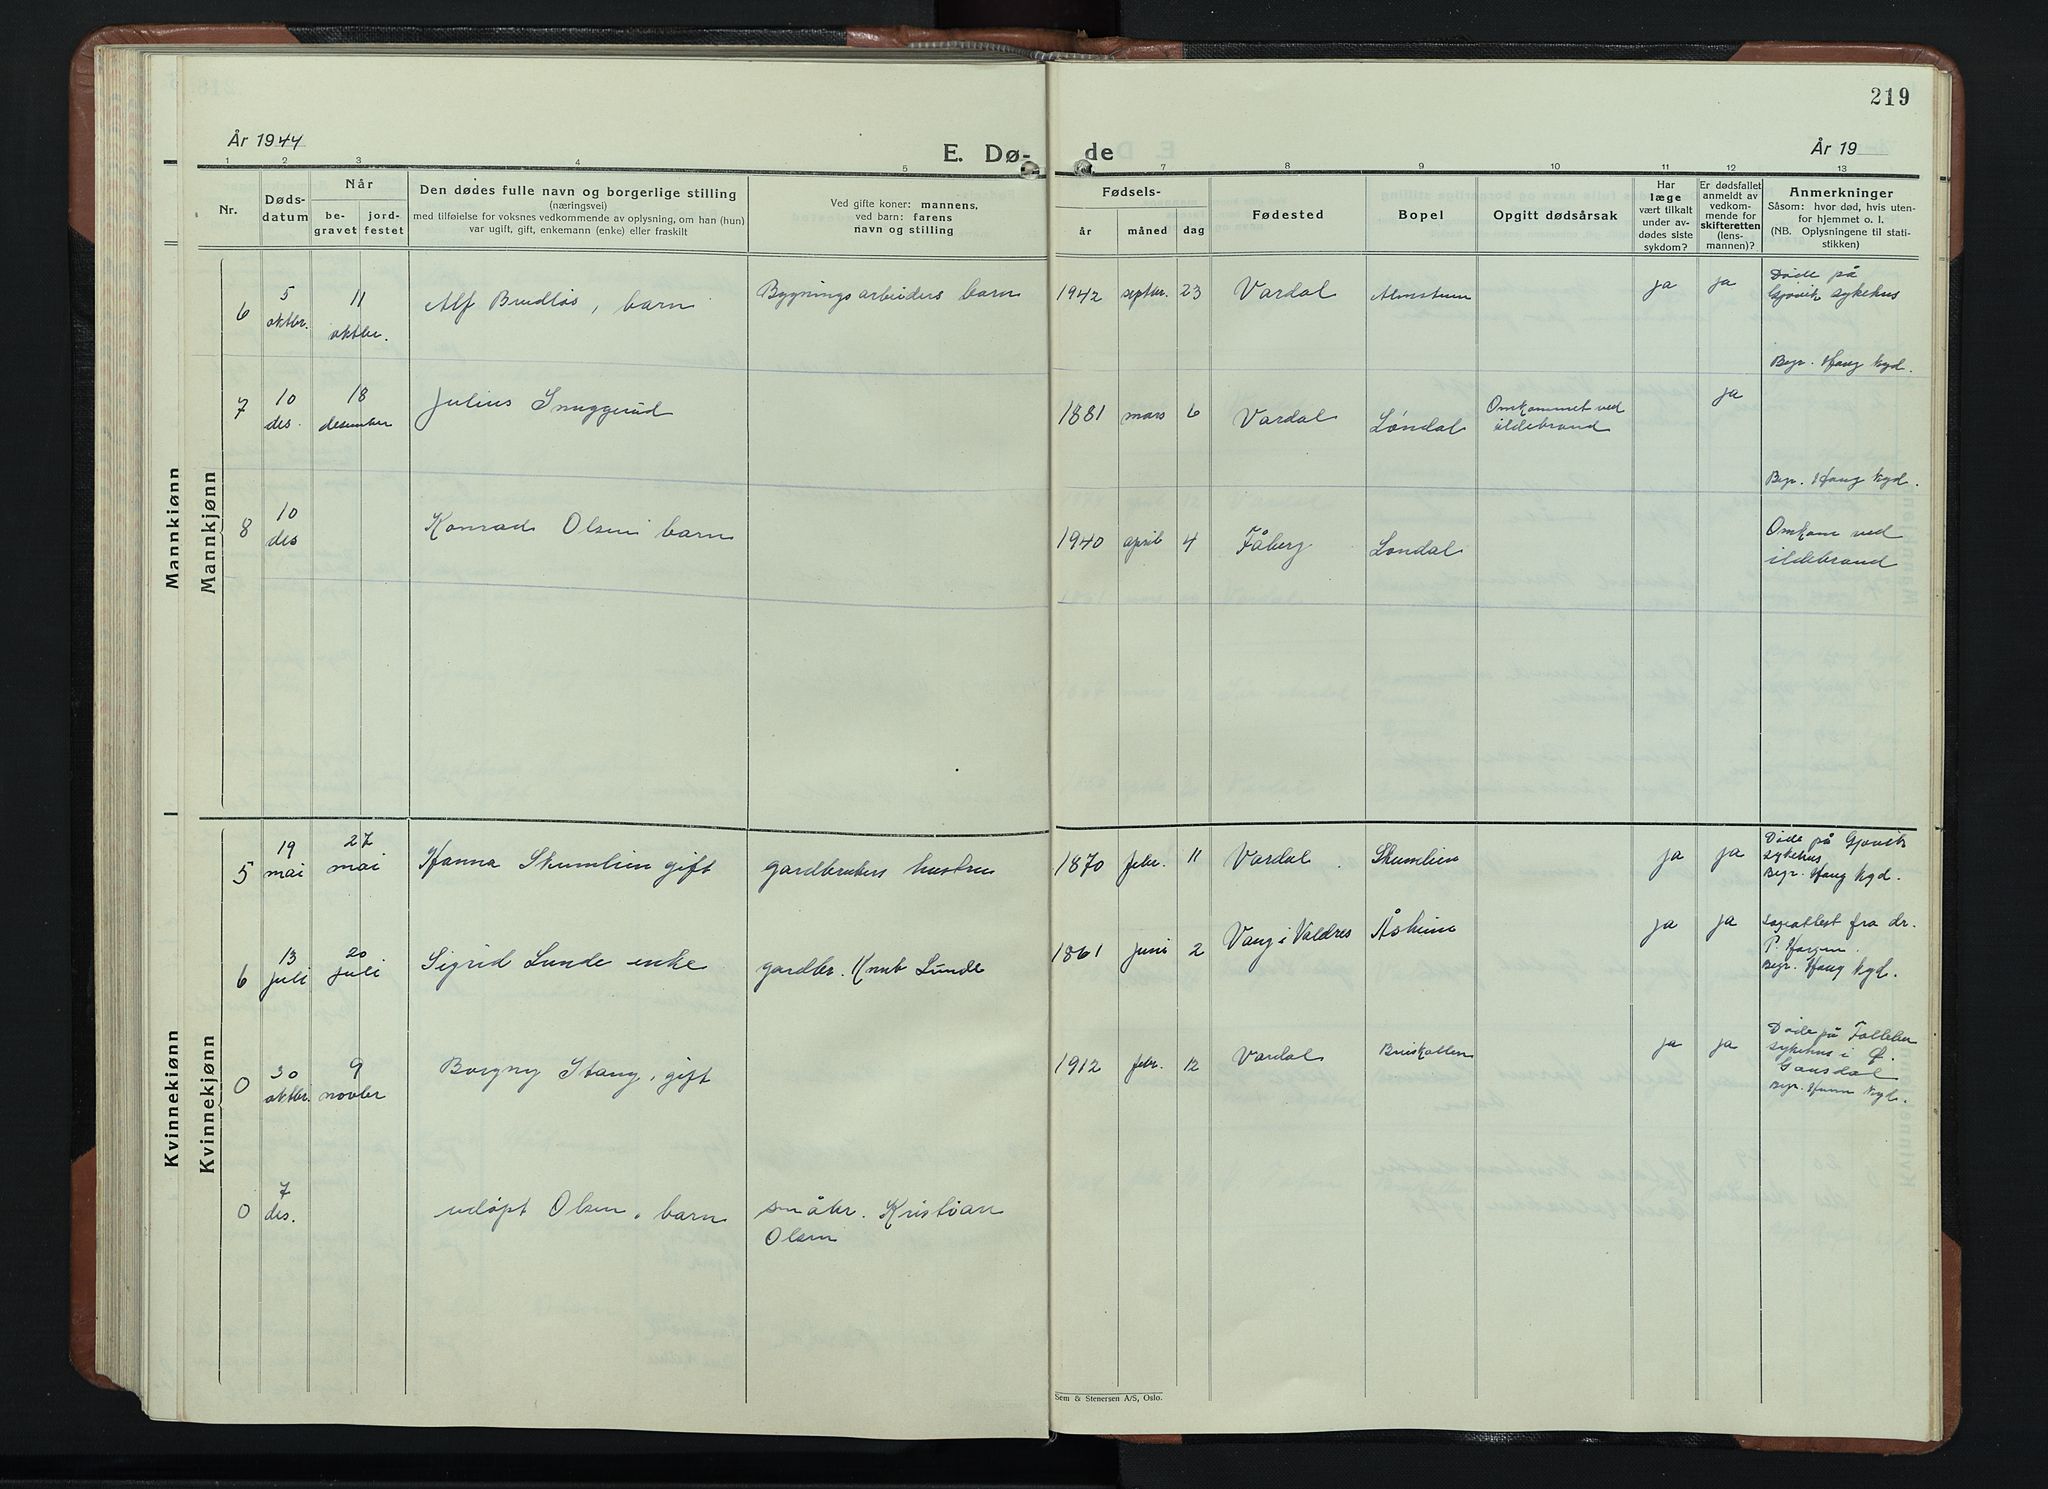 219
År 1944
E. Dø-
de
År 19
1 2 3 4 5 7 8 9 10 11 12 13
Nr.
Døds-
datum
Når
be-
gravet
jord-
festet
Den dødes fulle navn og borgerlige stilling
(næringsvei)
med tilføielse for voksnes vedkommende av oplysning, om han (hun)
var ugift, gift, enkemann (enke) eller fraskilt
Ved gifte koner: mannens,
ved barn: farens
navn og stilling
Fødsels-
år
måned
dag
Fødested
Bopel
Opgitt dødsårsak
Har
læge
vært tilkalt
under av-
dødes siste
sykdom?
Er dødsfallet
anmeldt av
vedkom-
mende for
skifteretten
(lens-
mannen)?
Anmerkninger
Såsom: hvor død, hvis uten-
for hjemmet o. l.
(NB. Oplysningene til stati-
stikken)
Mannkjønn
Mannkjønn
6 5 oktbr. 11 oktbr. Alf Bredløs, barn Bygningsarbeiders barn 1942 septbr. 23 Vardal ja ja Døde på
Gjøvik sykehus
Begr. Haug kgd.
7 10 des. 18 desember Julius Snuggerud 1881 mars 6 Vardal Løndal Omkommet ved ja
ildebrand
Begr. Haug kgd.
8 10 des Konrad Olsen barn 1940 april 4 Fåberg Løndal Omkom ved
ildebrand
Kvinnekjønn
Kvinnekjønn
5 19 mai 27 mai Hanna Skumlien gift gardbrukers hustru 1870 febr. 11 Vardal. Skumlien ja ja Døde på Gjøvik
sykehus
Begr. Haug kgd.
6 13 juli 20 juli Sigrid Lunde enke gardbr. Knut Lunde 1861 juni 2 Vang i Valdres Åsheim ja ja fra dr.
Begr. Haug kgd.
0 30 oktbr. 9 novber Borgny Stang, gift 1912 febr. 12 Vardal Bræskallen ja ja Døde på Follebu
sykehus i Ø.
Gausdal
Begr. Hunn kgd.
0 7 des. udøpt Olsen, barn småbr. Kristian
Olsen
Sem & Stenersen A/S, Oslo.